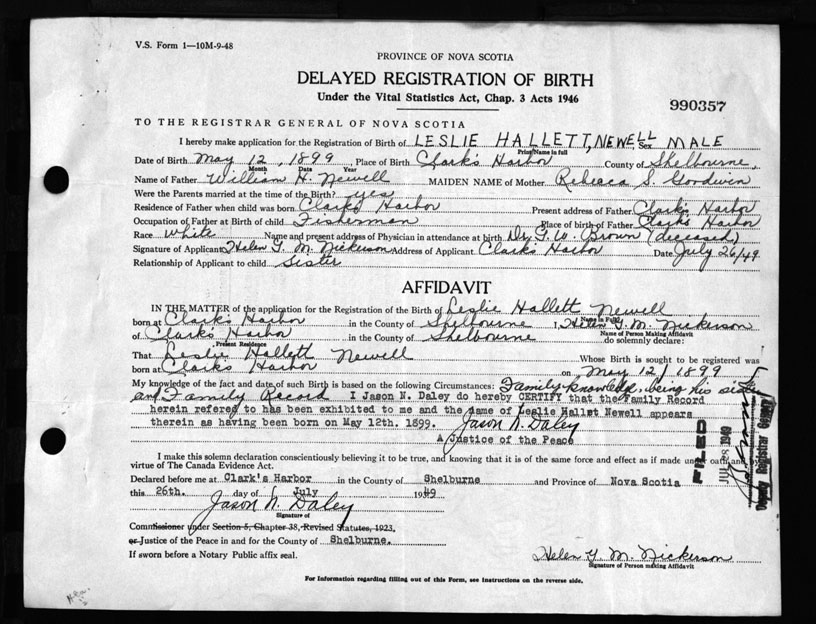 V.S. Form 1—10M-9-48
PROVINCE OF NOVA SCOTIA
DELAYED REGISTRATION OF BIRTH
Under the Vital Statistics Act, Chap. 3 Acts 1946
990357
TO THE REGISTRAR GENERAL OF NOVA SCOTIA
I hereby make application for the Registration of Birth of LESLIE HALLETT, NEWELL Sex MALE
Print Name in full
Date of Birth May 12, 1899, Place of Birth Clark's Harbor County of Shelbourne
Month Date Year
Name of Father William H. Newell MAIDEN NAME of Mother Rebecca S. Goodwin
Were the Parents married at the time of the Birth? yes
Residence of Father when child was born Clark's Harbor Present address of Father Clark's Harbor
Occupation of Father at Birth of child Fisherman Place of birth of Father Clark's Harbor
Race White Name and present address of Physician in attendance at birth Dr. G. W. Brown (deceased)
Signature of Applicant Helen G. M. Nickerson Address of Applicant Clark's Harbor Date July 26/49
Relationship of Applicant to child Sister
AFFIDAVIT
IN THE MATTER of the application for the Registration of the Birth of Leslie Hallett Newell
Name in Full
born at Clark's Harbor in the County of Shelbourne I, Helen G. M. Nickerson
Name of Person Making Affidavit
of Clark's Harbor in the County of Shelbourne do solemnly declare:
Present Residence
That Leslie Hallett Newell Whose Birth is sought to be registered was
born at Clark's Harbor on May 12, 1899
My knowledge of the fact and date of such Birth is based on the following Circumstances: Family knowledge, being his sister
and Family Record I Jason N. Daley do hereby CERTIFY that the Family Record
herein refered to has been exhibited to me and the name of Leslie Hallet Newell appears
therein as having been born on May 12th. 1899. Jason N. Daley
A Justice of the Peace
I make this solemn declaration conscientiously believing it to be true, and knowing that it is of the same force and effect as if made under oath and by
virtue of The Canada Evidence Act.
Declared before me at Clark's Harbor in the County of Shelburne and Province of Nova Scotia
this 26th. day of July 1949
Jason N. Daley
Signature of
Commissioner under Section 5, Chapter 38, Revised Statutes, 1923,
or Justice of the Peace in and for the County of Shelburne.
If sworn before a Notary Public affix seal.
Helen G. M. Nickerson
Signature of Person making Affidavit
For Information regarding filling out of this Form, see Instructions on the reverse side.
FILED
JUL 28 1949
Deputy Registrar General